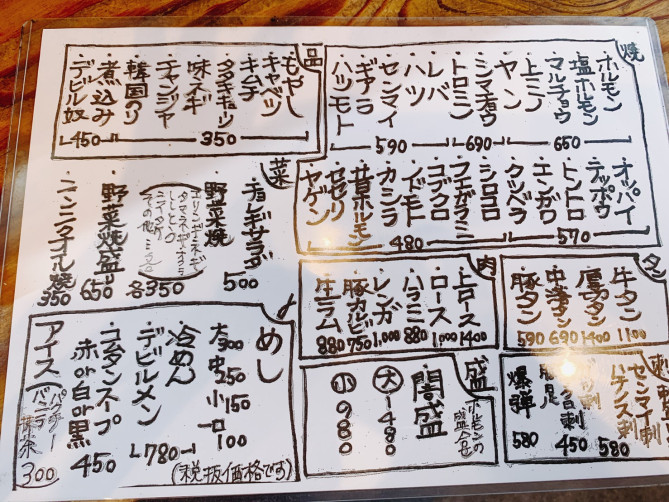 焼
ホルモン
塩ホルモン
マルチョウ
650
上ミノ
ヤン
シマチョウ
トロミノ
690
レバ
ハツ
センマイ
ギアラ
ハツモト
590
オッパイ
テッポウ
トントロ
エンガワ
クツベラ
570
シロコロ
フエガラミ
コブクロ
ノドモト
カシラ
豚ホルモン
セセリ
ヤゲン
480
品
もやし
キャベツ
キムチ
タタキキュウリ
味ネギ
チャンジャ
韓国のり
350
煮込み
デビル奴
450
菜
チョレギサラダ
500
野菜焼
各350
野菜焼盛り
650
ニンニクオイル焼
350
タン
牛タン
1100
厚切タン
1400
中落タン
690
豚タン
590
肉
上ロース
1400
ロース
1,000
ハラミ
880
レンガ
1,000
豚カルビ
750
生ラム
880
刺
センマイ刺
ハチノス刺
580
450
爆弾
580
盛
ホルモンの盛合せ
闇盛
大 1480
小 980
めし
大 300
中 250
小 150
一口 100
冷めん
デビルメン
780
コムタンスープ
赤or白or黒
450
アイス
バニラ
抹茶
300
(税抜価格です)